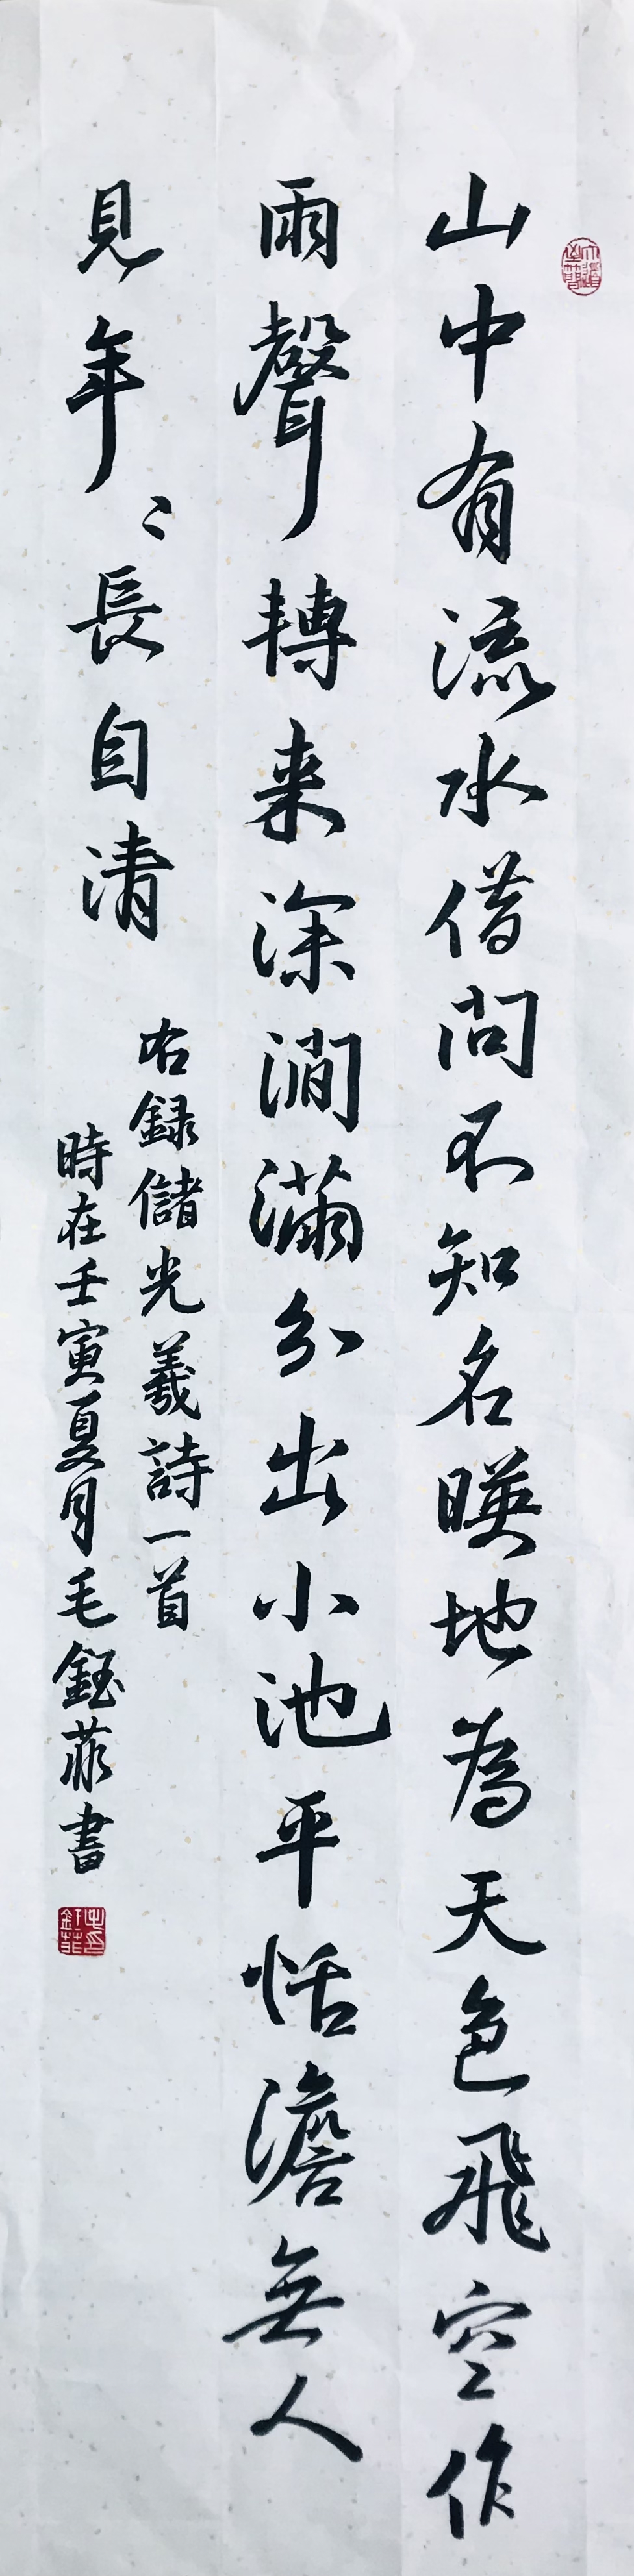 山中有流水借問不知名暎地為天色飛空作
雨聲轉來深澗滿分出小池平恬澹無人
見年〻長自清
右録儲光羲詩一首
時在壬寅夏月毛鈺菲書